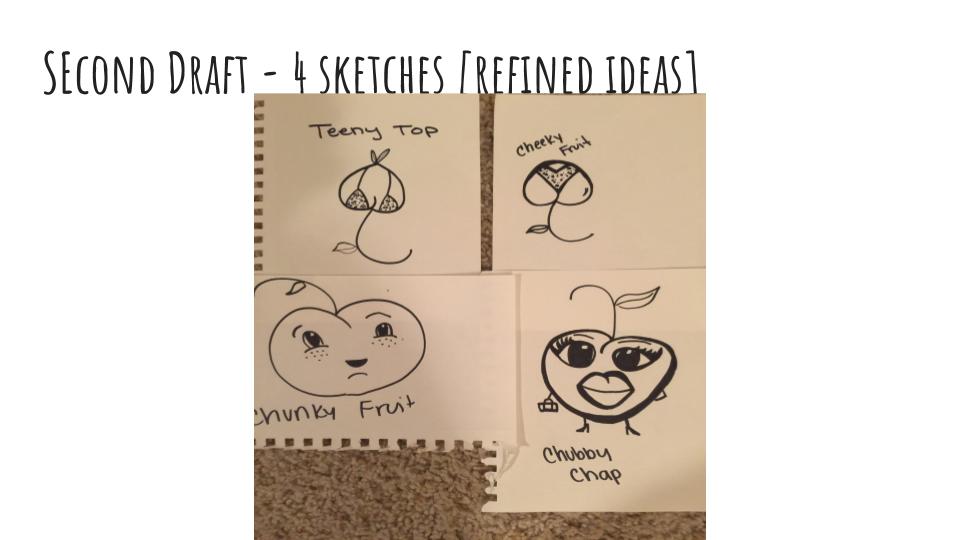 SEcond Draft - 4 sketches [refined ideas]
Teeny Top
Cheeky
Fruit
Chunky Fruit
Chubby
Chap